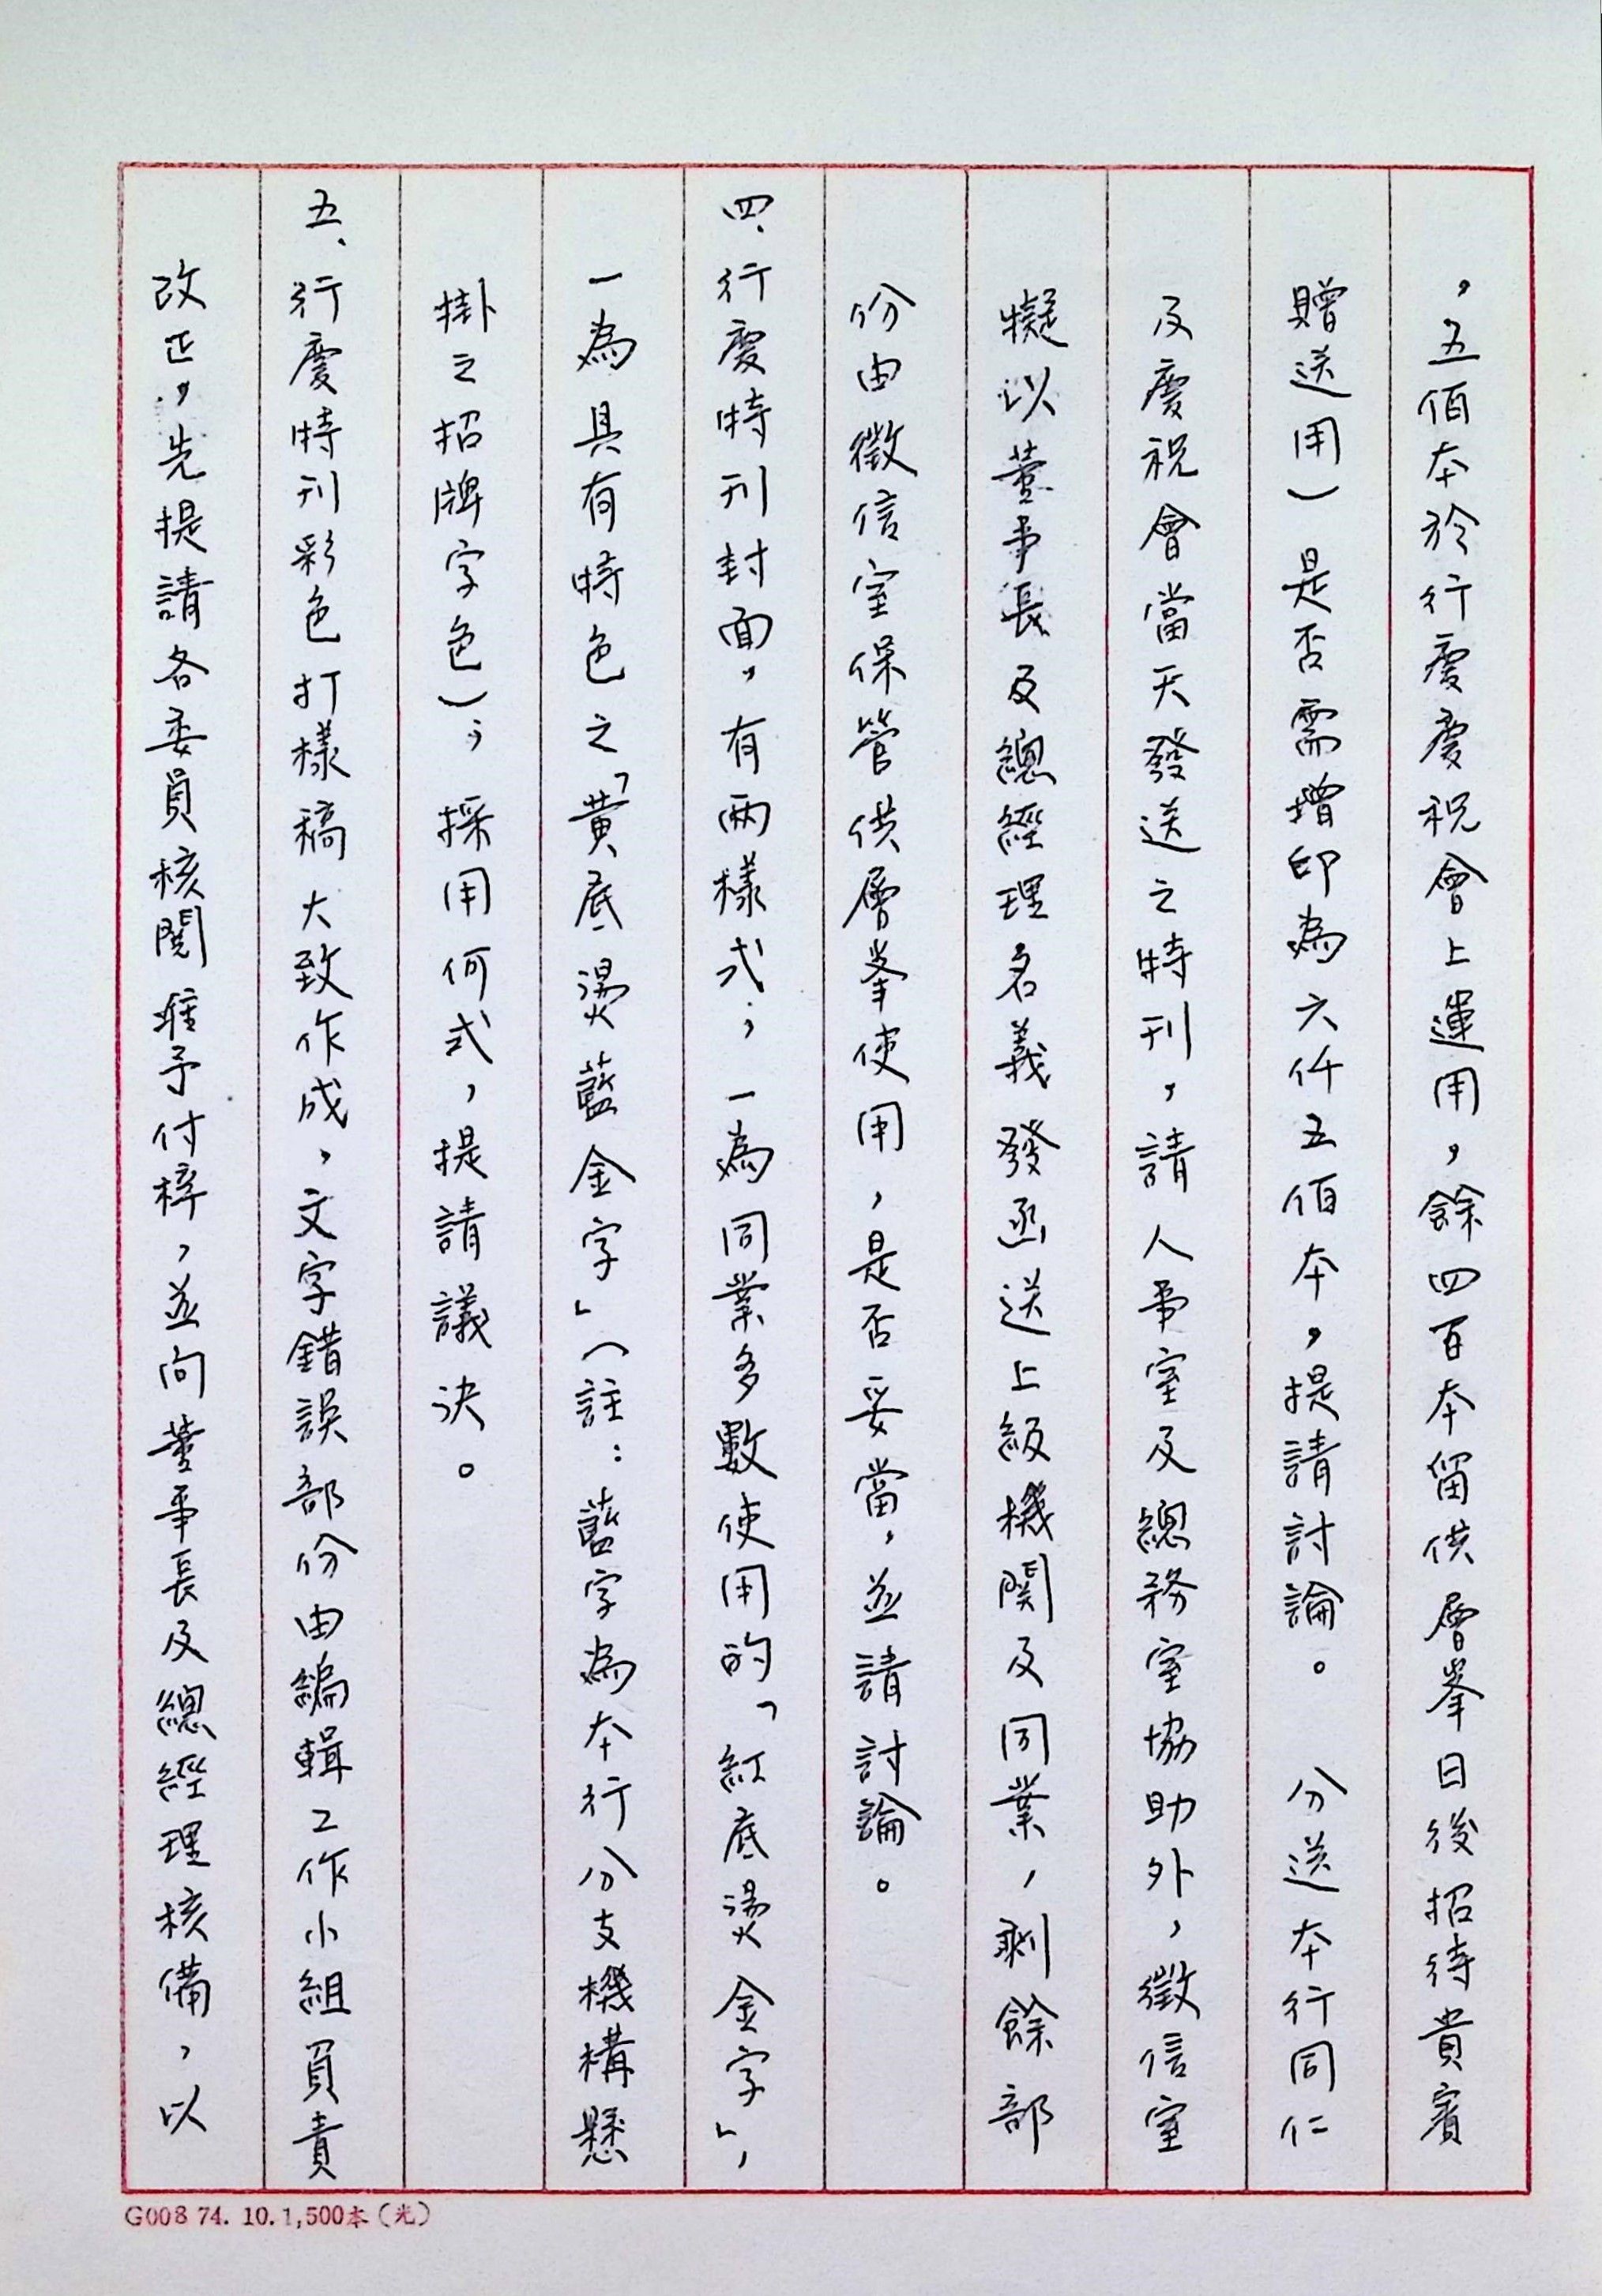 ，五佰本於行慶慶祝會上運用，餘四百本留供層峯日後招待貴賓
贈送用）是否需增印為六仟五佰本，提請討論。　分送本行同仁
及慶祝會當天發送之特刊，請人事室及總務室協助外，徵信室
擬以董事長及總經理名義發函送上級機關及同業，剩餘部
份由徵信室保管供層峯使用，是否妥當，並請討論。
四、行慶特刊封面，有兩樣式；一為同業多數使用的「紅底燙金字」，
一為具有特色之「黃底燙藍金字」（註：藍字為本行分支機構懸
掛之招牌字色）；採用何式，提請議決。
五、行慶特刊彩色打樣稿大致作成，文字錯誤部份由編輯工作小組負責
改正，先提請各委員核閱准予付梓，並向董事長及總經理核備，以
G008 74. 10. 1,500本（光）